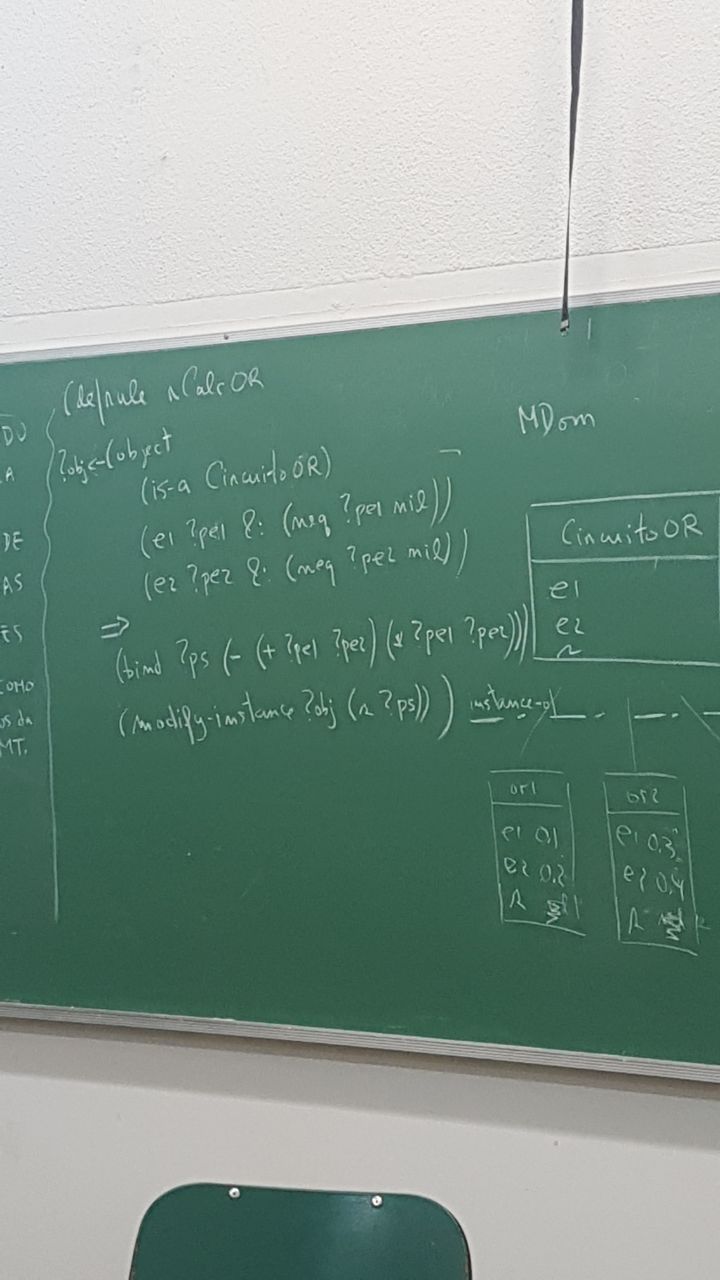 DO
A
DE
AS
ES
COMO
os da
MT.
(defrule rCalcOR
?obj<-(object
(is-a CircuitoOR)
(e1 ?pe1 &: (neq ?pe1 nil))
(e2 ?pe2 &: (neq ?pe2 nil))
=>
(bind ?ps (- (+ ?pe1 ?pe2) (* ?pe1 ?pe2)))
(modify-instance ?obj (r ?ps)))
MDom
CircuitoOR
e1
e2
r
instance-of
or1
e1 0.1
e2 0.2
r
or2
e1 0.3
e2 0.4
r